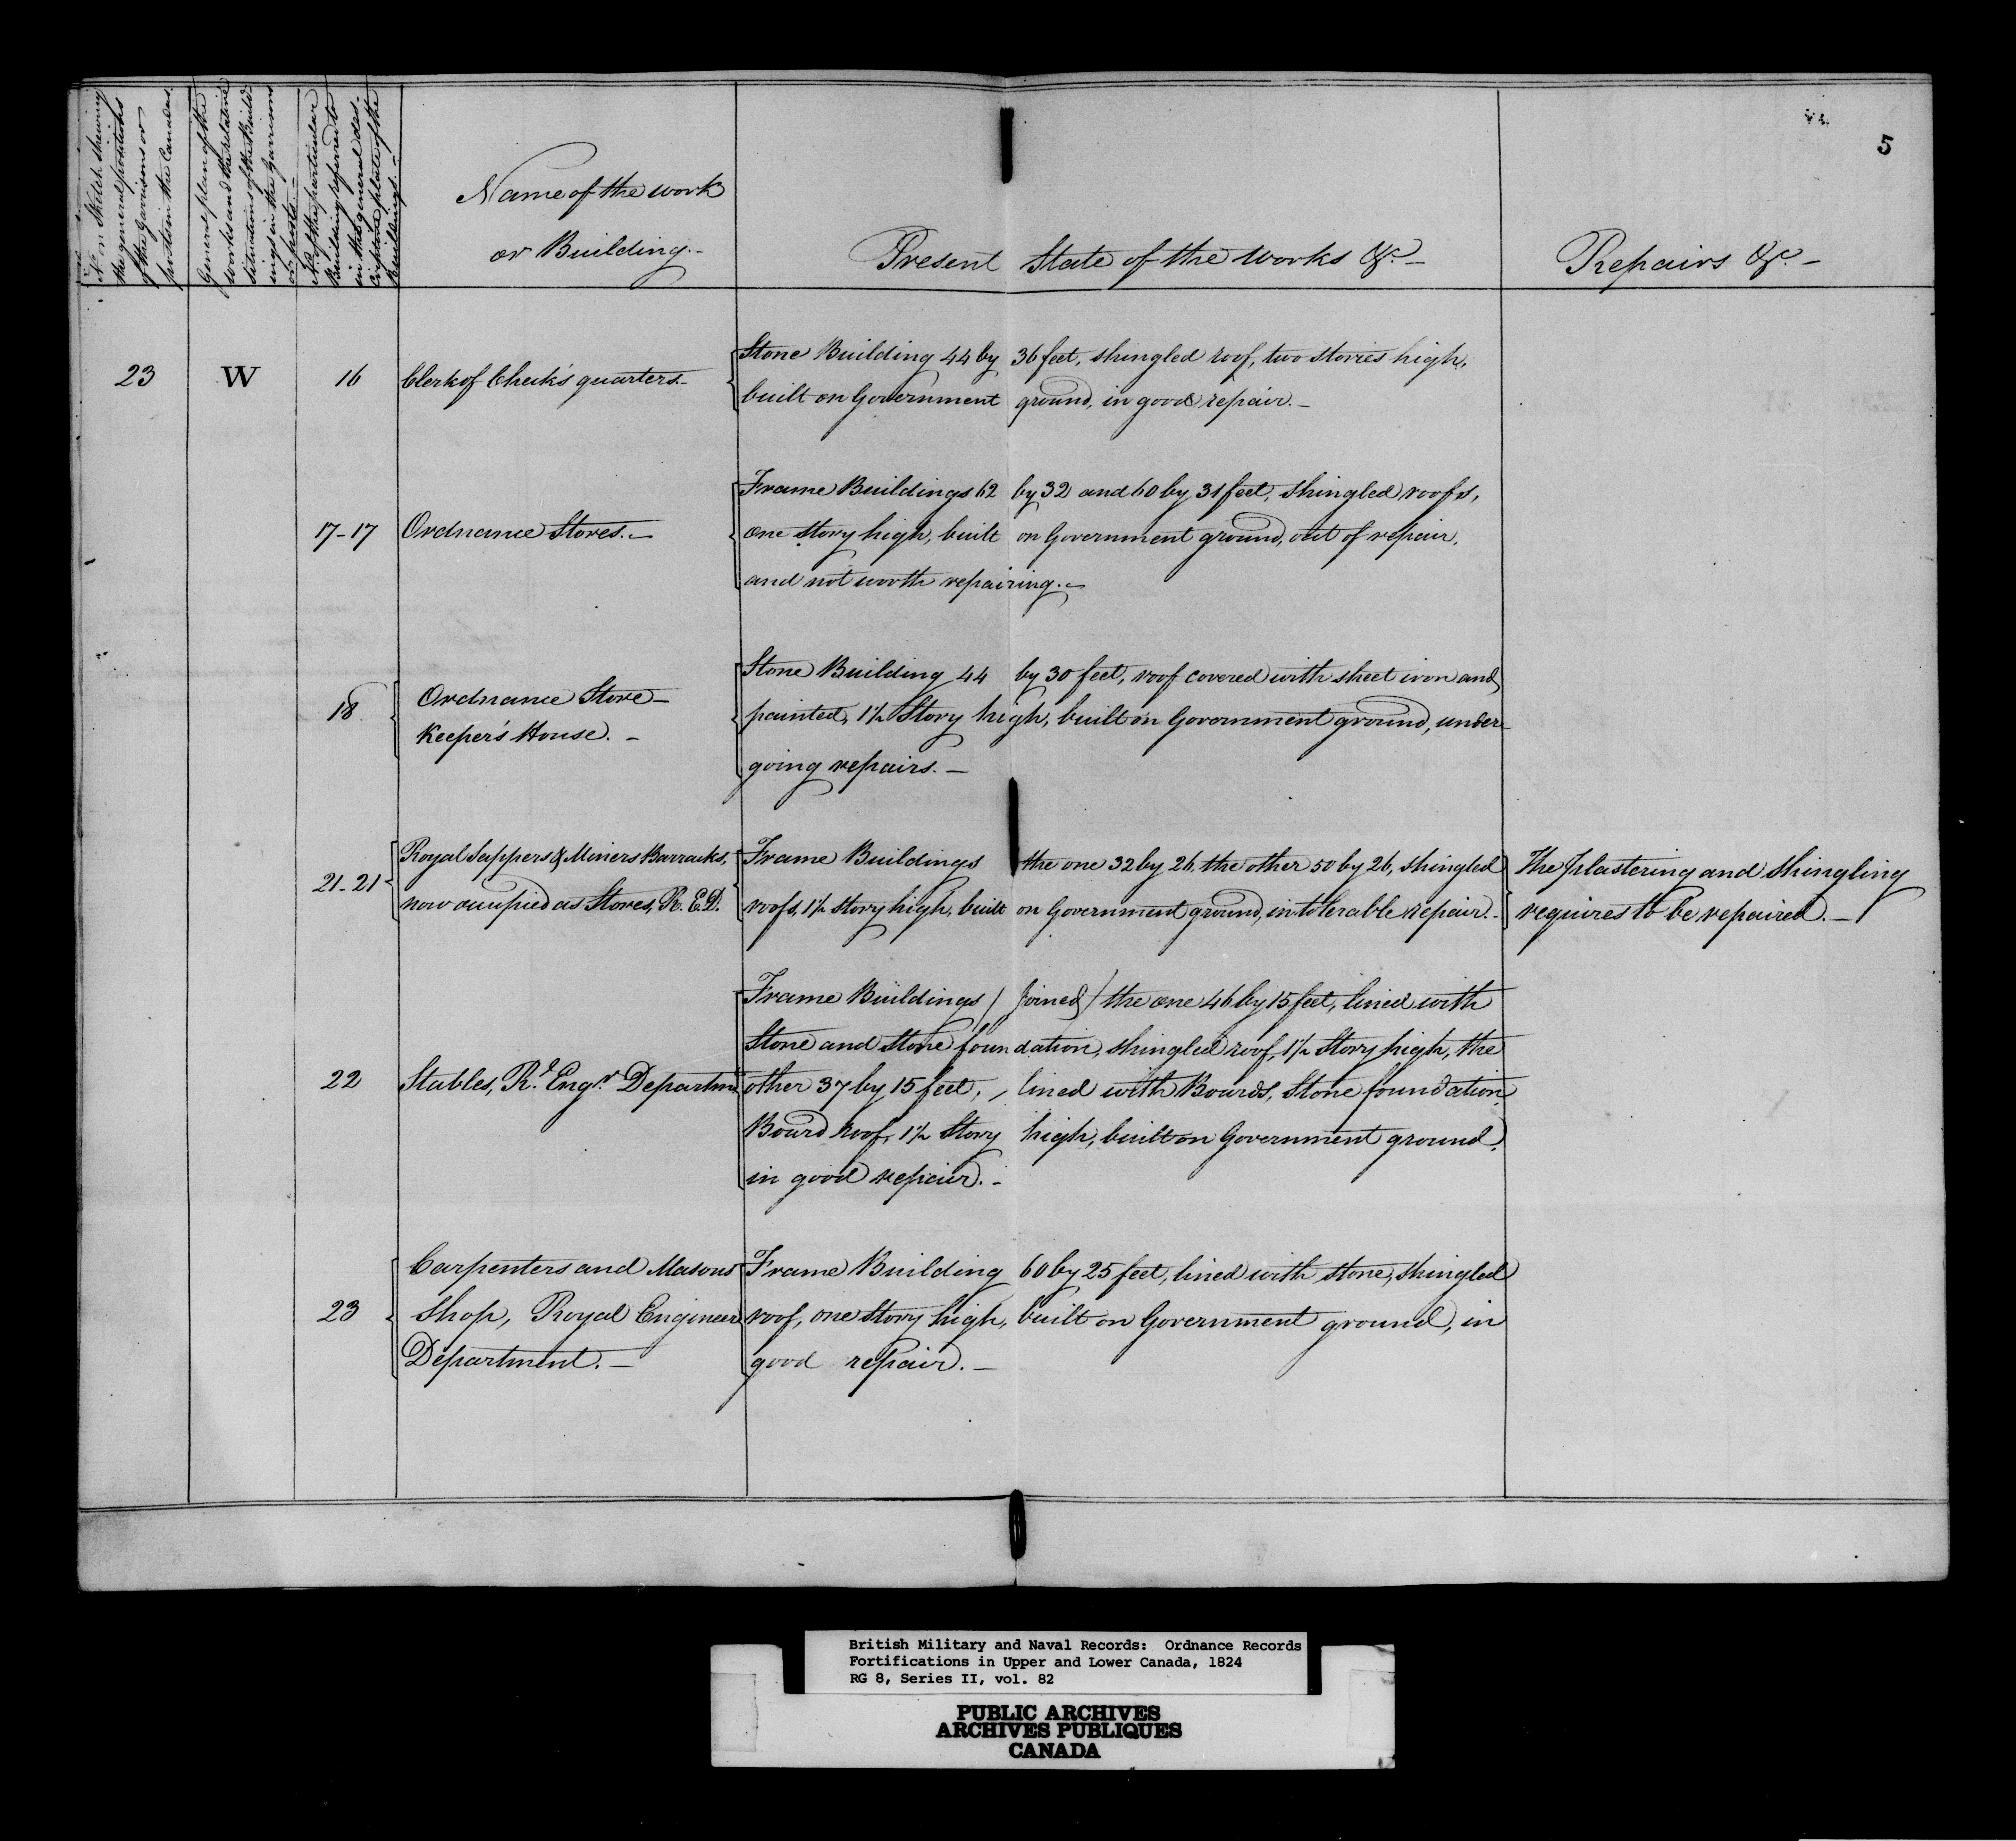 5
No. on Sketch shewing
the general positions
of the Garrisons or
posts in the Canadas.
General plan of the
works and the relative
situations of the Build
ings in the Garrisons
or posts. —
No. of the particular
Building referred to
in the general des.
Buildings. —
Name of the work
or Building. —
Present State of the works &c. —
Repairs &c. —
23 W 16 Clerk of Check's quarters. —
Stone Building 44 by 36 feet, shingled roof, two stories high,
built on Government ground, in good repair. —
17-17 Ordnance Stores. —
Frame Buildings 62 by 32 and 60 by 31 feet, shingled roofs,
one story high, built on Government ground, out of repair,
and not worth repairing. —
18 Ordnance Store-
Keeper's House. —
Stone Building 44 by 30 feet, roof covered with sheet iron and
painted, 1½ Story high, built on Government ground, under-
going repairs. —
21-21 Royal Sappers & Miners Barracks,
now occupied as Stores, R. E.D.
Frame Buildings the one 32 by 26, the other 50 by 26, shingled
roofs, 1½ story high, built on Government ground, in tolerable repair. —
The plastering and shingling
requires to be repaired. —
22 Stables, Rl. Engr. Departm
Frame Buildings / joined / the one 46 by 15 feet, lined with
Stone and Stone foundation, shingled roof, 1½ Story high, the
other 37 by 15 feet, lined with Boards, Stone foundation,
Board roof, 1½ Story high, built on Government ground,
in good repair. —
23 Carpenters and Masons
Shop, Royal Engineer
Department. —
Frame Building 60 by 25 feet, lined with stone, shingled
roof, one Story high, built on Government ground, in
good repair. —
British Military and Naval Records: Ordnance Records
Fortifications in Upper and Lower Canada, 1824
RG 8, Series II, vol. 82
PUBLIC ARCHIVES
ARCHIVES PUBLIQUES
CANADA